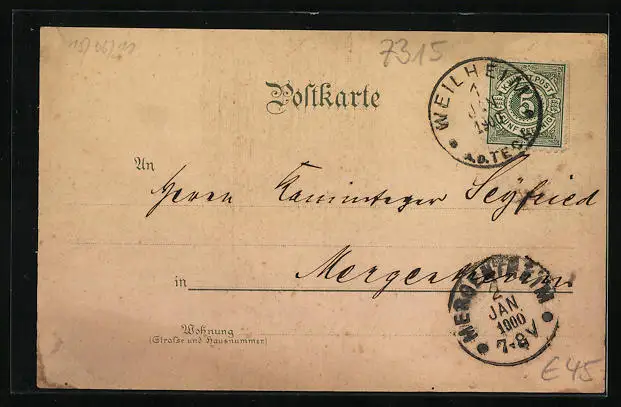 15/06/11
7315
Postkarte
WEILHEIM
1 JAN
A.D. TECK
K. W. POST
5
FÜNF PFENNIG
An
Herrn Kaminfeger Seyfried
in Mergentheim
MERGENTHEIM
2
JAN
1900
7-8V
Wohnung
(Straße und Hausnummer)
€45-